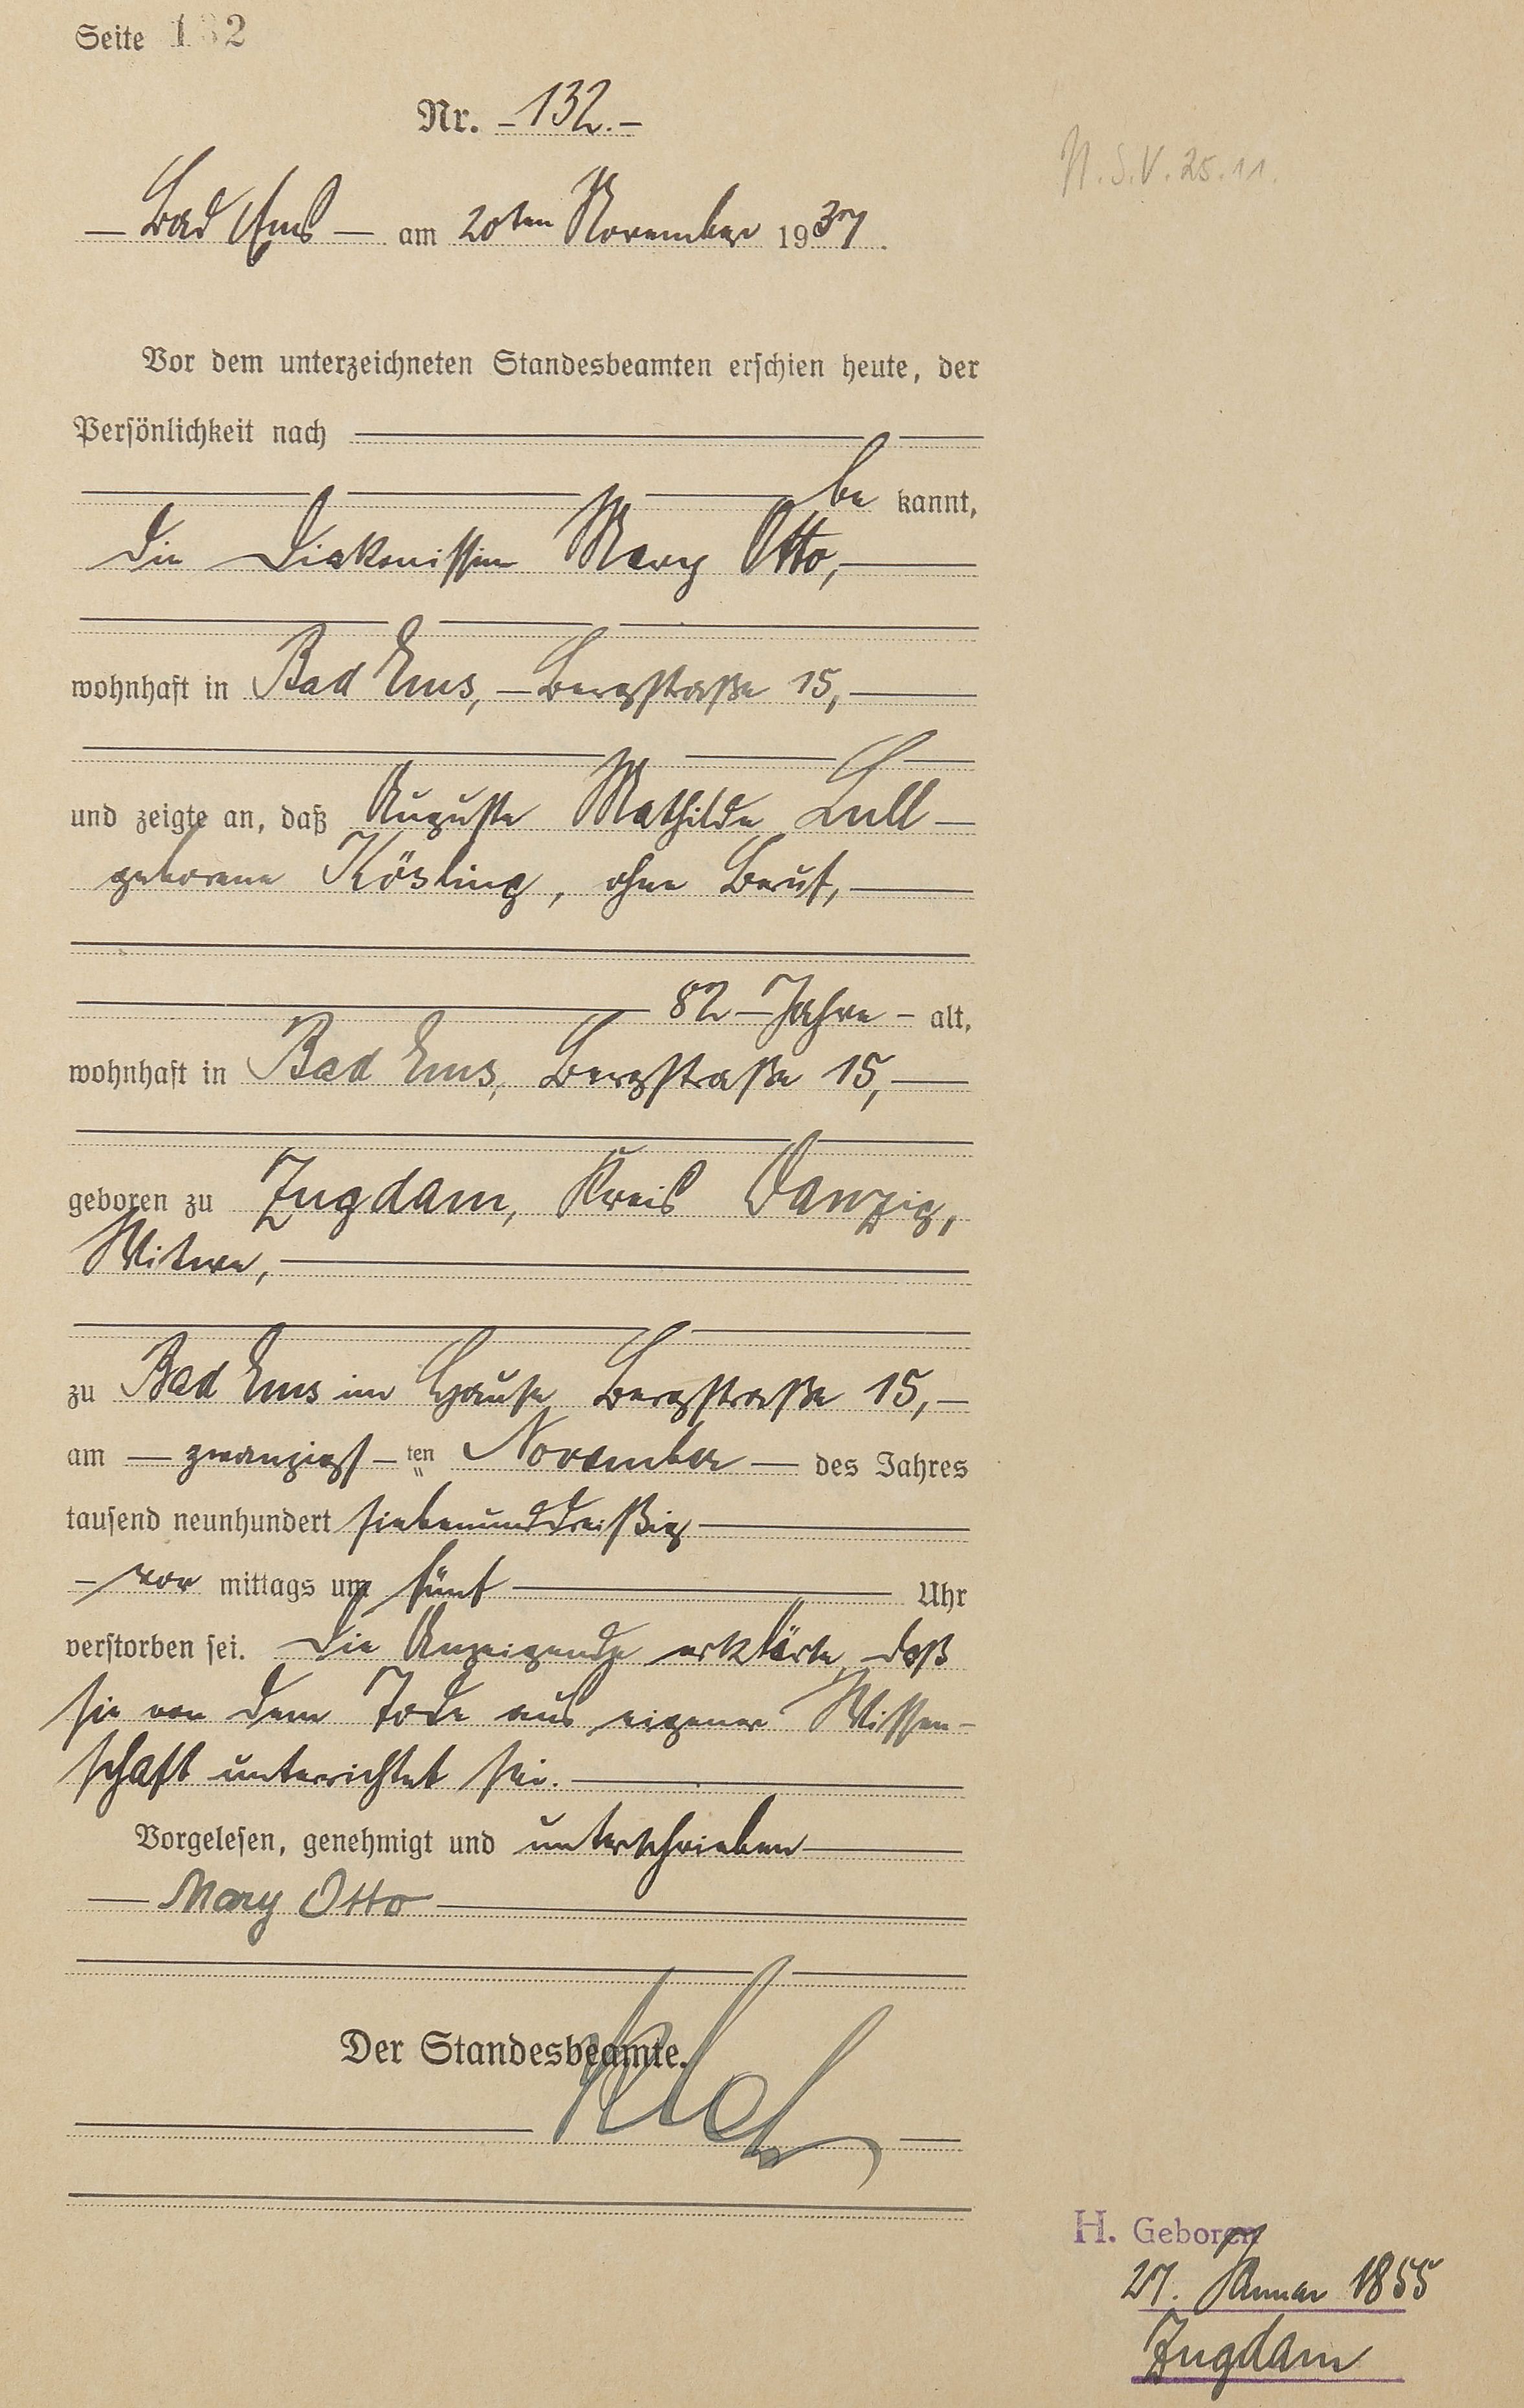 Seite 132
Nr. -132.-
N.S.V. 25.11.
— Bad Ems — am 20ten November 1937.
Vor dem unterzeichneten Standesbeamten erschien heute, der
Persönlichkeit nach
be kannt,
die Diakonissin Mary Otto,
wohnhaft in Bad Ems, – Bergstraße 15,
und zeigte an, daß Auguste Mathilde Lull –
geborene Kösling, ohne Beruf,
82 – Jahre – alt,
wohnhaft in Bad Ems, Bergstraße 15,
geboren zu Zugdam, Kreis Danzig,
Witwe,
zu Bad Ems im Hause Bergstraße 15, –
am — zwanzigst – ten November — des Jahres
tausend neunhundert siebenunddreißig
– vor mittags um fünf Uhr
verstorben sei. Die Anzeigende erklärte, daß
sie von dem Tode aus eigener Wissen-
schaft unterrichtet sei.
Vorgelesen, genehmigt und unterschrieben
— Mary Otto
Der Standesbeamte.
H. Geboren
27. Januar 1855
Zugdam